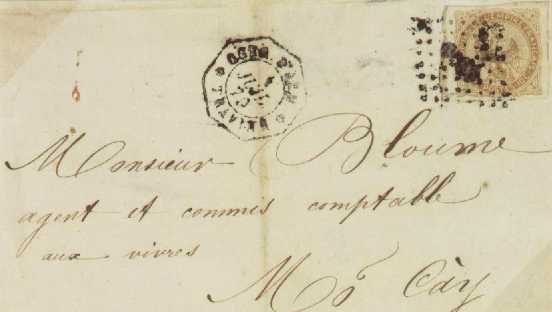 Monsieur Bloume
agent et commis comptable
aux vivres
Mỏ Cày